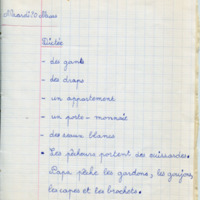 Mardi 10 Mars
Dictée
- des gants
- des draps
- un appartement
- un porte-monnaie
- des seaux blancs
• Les pêcheurs portent des cuissardes.
Papa pêche les gardons, les goujons,
les carpes et les brochets.